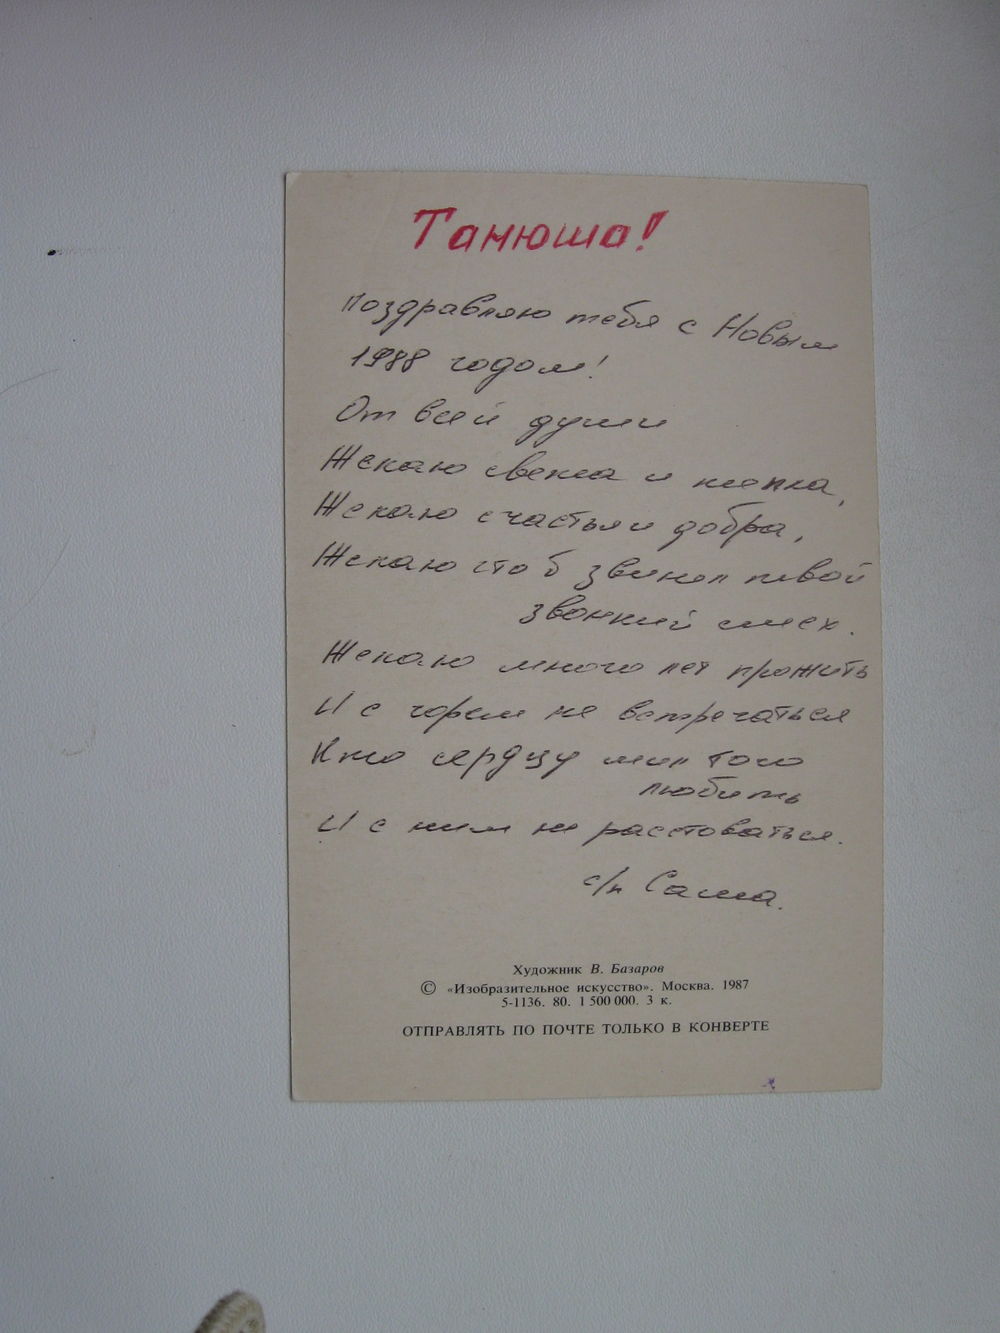 Танюша!
Поздравляю тебя с Новым
1988 годом!
От всей души
Желаю света и тепла,
Желаю счастья и добра,
Желаю что б звенел твой
звонкий смех.
Желаю много лет прожить
И с горем не встречаться
Кто сердцу мил того
любить
И с ним не расстоваться.
с/п Саша.
Художник В. Базаров
© «Изобразительное искусство». Москва. 1987
5-1136. 80. 1 500 000. 3 к.
ОТПРАВЛЯТЬ ПО ПОЧТЕ ТОЛЬКО В КОНВЕРТЕ